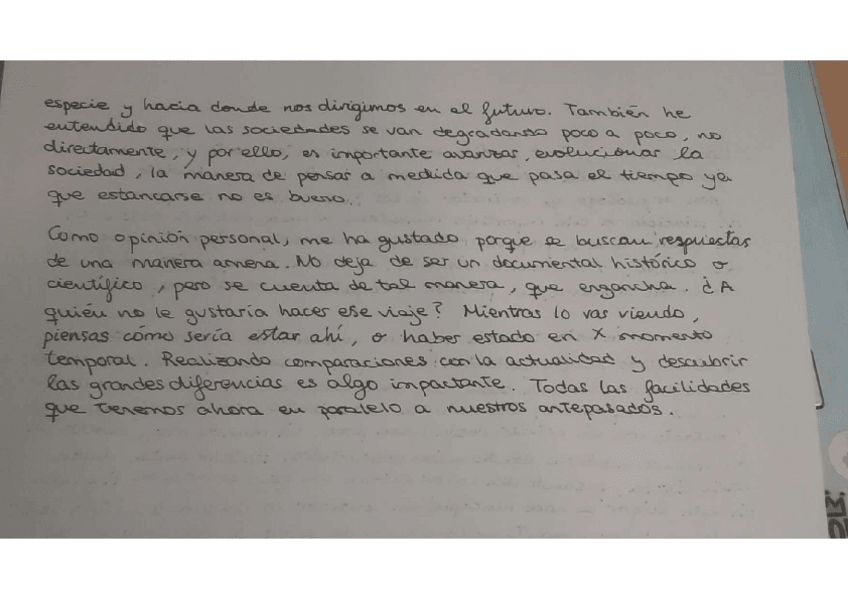 especie y hacia donde nos dirigimos en el futuro. También he
entendido que las sociedades se van degradando poco a poco, no
directamente, y por ello, es importante avanzar, evolucionar la
sociedad, la manera de pensar a medida que pasa el tiempo ya
que estancarse no es bueno.
Como opinión personal, me ha gustado porque se buscan respuestas
de una manera amena. No deja de ser un documental histórico o
científico, pero se cuenta de tal manera, que engancha. ¿A
quién no le gustaría hacer ese viaje? Mientras lo vas viendo,
piensas cómo sería estar ahí, o haber estado en X momento
temporal. Realizando comparaciones con la actualidad y descubrir
las grandes diferencias es algo impactante. Todas las facilidades
que tenemos ahora en paralelo a nuestros antepasados.